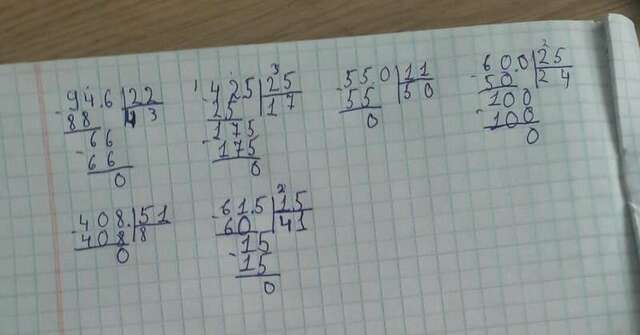 94.6 22
88 43
66
66
0
425 25
25 17
175
175
0
550 11
55 50
0
60.0 25
50 24
100
100
0
408. 51
408 8
0
61.5 15
60 41
15
15
0